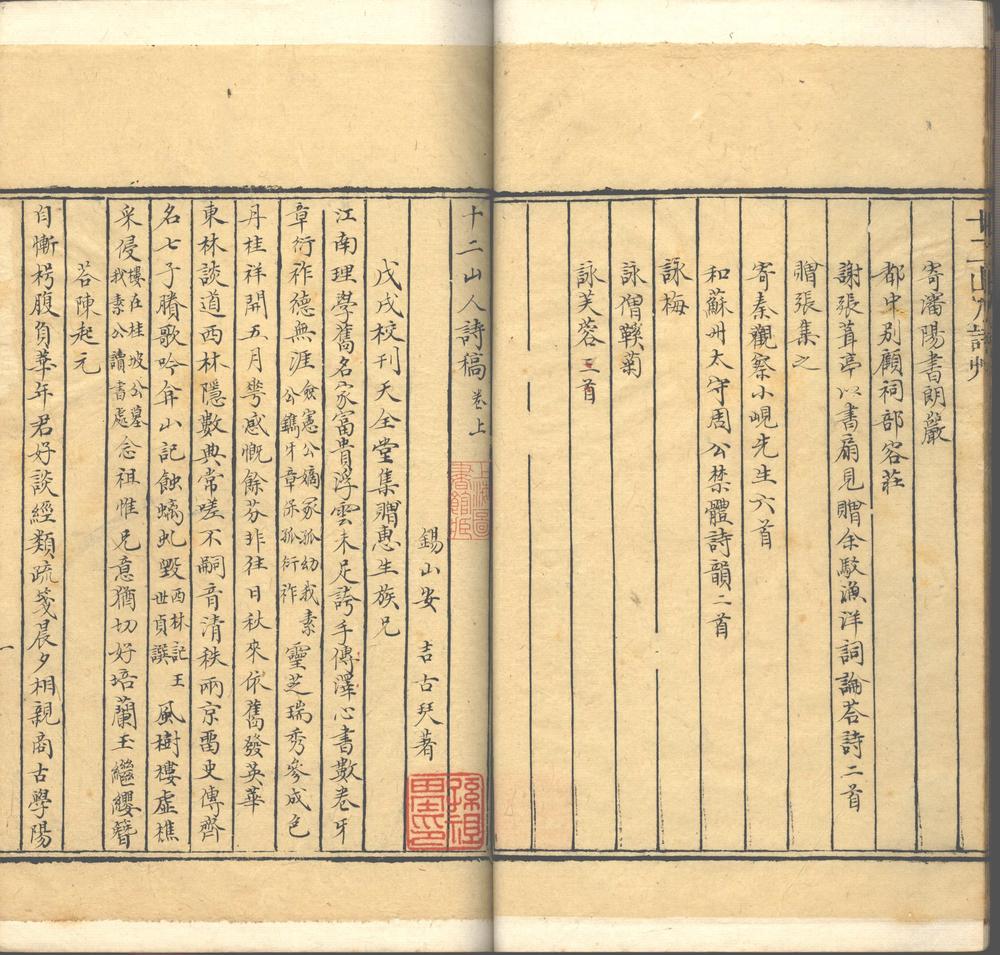 寄瀋陽書朗巖
都中別顧祠部容莊
謝張葺亭以書扇見贈余駁漁洋詞論荅詩二首
贈張集之
寄秦觀察小峴先生六首
和蘇州太守周公禁體詩韻二首
詠梅
詠僧鞵菊
詠芙蓉三首
十二山人詩稿卷上
錫山安 吉古琴著
戊戌校刊天全堂集贈惠生族兄
江南理學舊名家富貴浮雲未足誇手傳澤心書數卷牙
章衍祚德無涯僉憲公嫡冢孤幼我素公鐫牙章禾孤衍祚靈芝瑞秀參成色
丹桂祥開五月夢感慨餘芬非往日秋來依舊發英華
東林談道西林隱數典常嗟不嗣音清秩兩京畱史傳齊
名七子賸歌吟弇山記蝕螭虬毀西林記王世貞譔風樹樓虛樵
采侵樓在桂坡公墓我素公讀書處念祖惟兄意猶切好培蘭玉繼纓簪
荅陳起元
自慚枵腹負華年君好談經類疏箋晨夕相親商古學陽
一